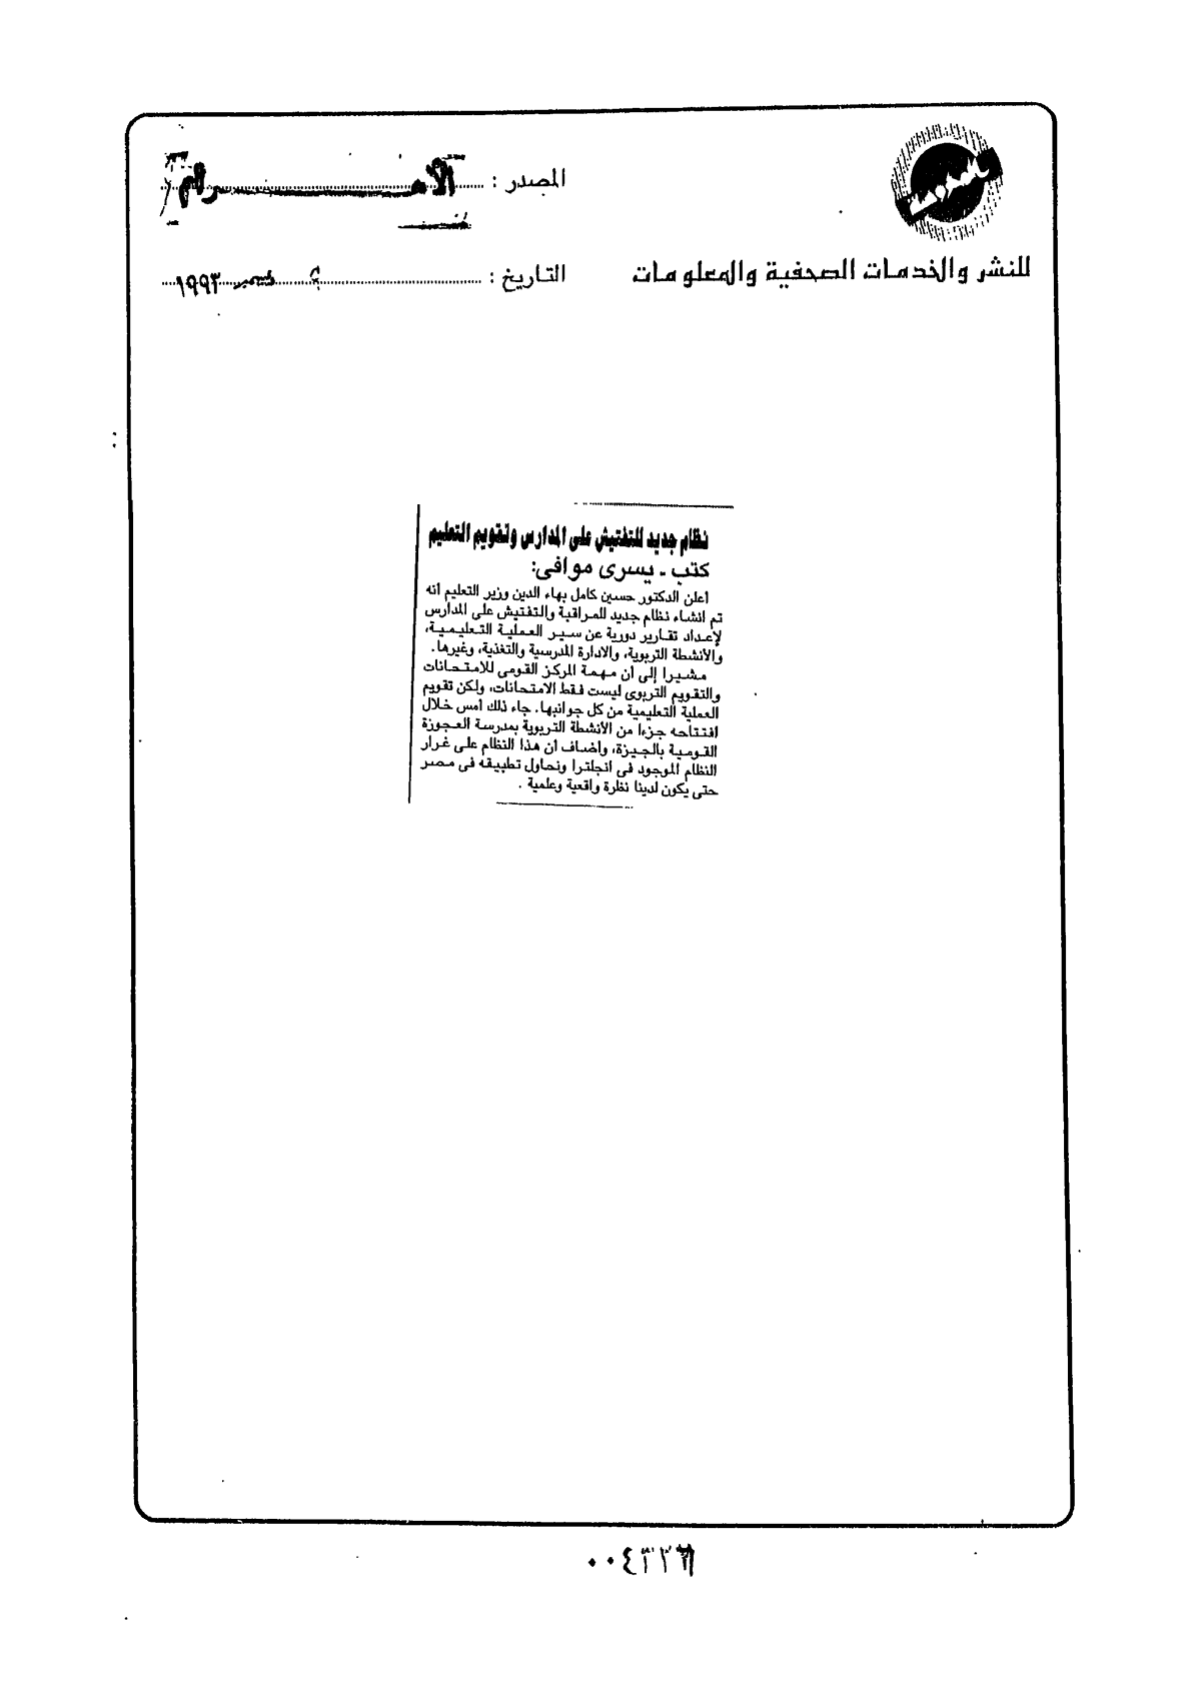 المصدر : الأهـــرام
للنشر والخدمات الصحفية والمعلومات
التاريخ : ديسمبر ١٩٩٣
نظام جديد للتفتيش على المدارس وتقويم التعليم
كتب ـ يسرى موافى:
أعلن الدكتور حسين كامل بهاء الدين وزير التعليم أنه
تم انشاء نظام جديد للمراقبة والتفتيش على المدارس
لإعداد تقارير دورية عن سير العملية التعليمية،
والأنشطة التربوية، والادارة المدرسية والتغذية، وغيرها.
مشيرا إلى أن مهمة المركز القومى للامتحانات
والتقويم التربوى ليست فقط الامتحانات، ولكن تقويم
العملية التعليمية من كل جوانبها. جاء ذلك أمس خلال
افتتاحه جزءا من الأنشطة التربوية بمدرسة العجوزة
القومية بالجيزة، واضاف أن هذا النظام على غرار
النظام الموجود فى انجلترا ونحاول تطبيقه فى مصر
حتى يكون لدينا نظرة واقعية وعلمية .